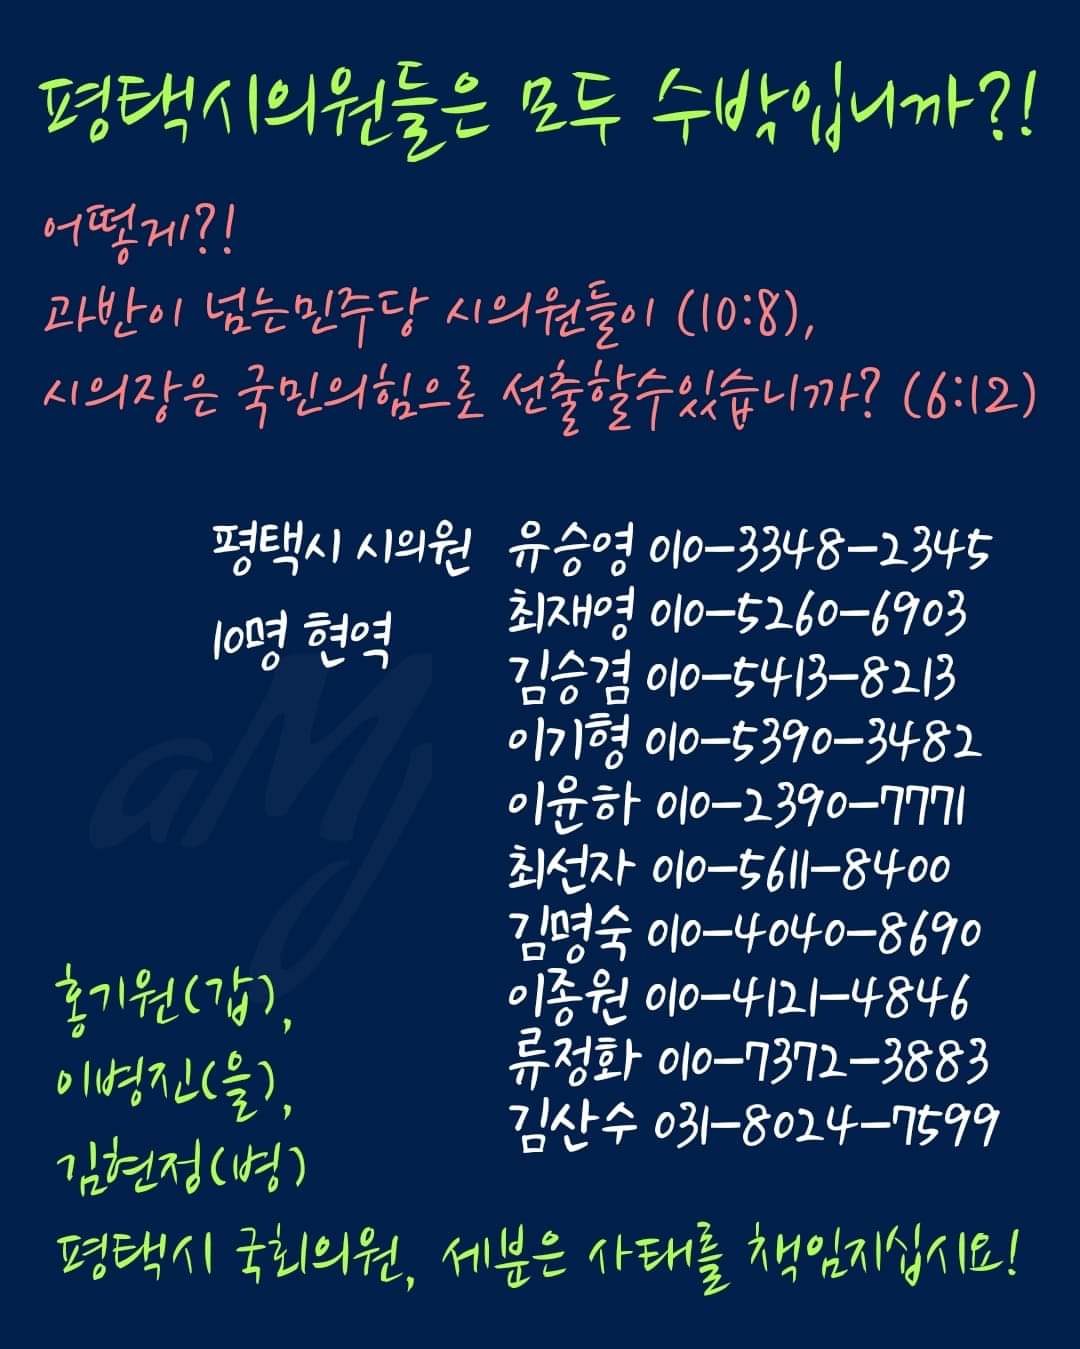 평택시의원들은 모두 수박입니까?!
어떻게?!
과반이 넘는민주당 시의원들이 (10:8),
시의장은 국민의힘으로 선출할수있습니까? (6:12)
평택시 시의원
10명 현역
유승영 010-3348-2345
최재영 010-5260-6903
김승겸 010-5413-8213
이기형 010-5390-3482
이윤하 010-2390-7771
최선자 010-5611-8400
김명숙 010-4040-8690
이종원 010-4121-4846
류정화 010-7372-3883
김산수 031-8024-7599
aMy
홍기원(갑),
이병진(을),
김현정(병)
평택시 국회의원, 세분은 사태를 책임지십시요!